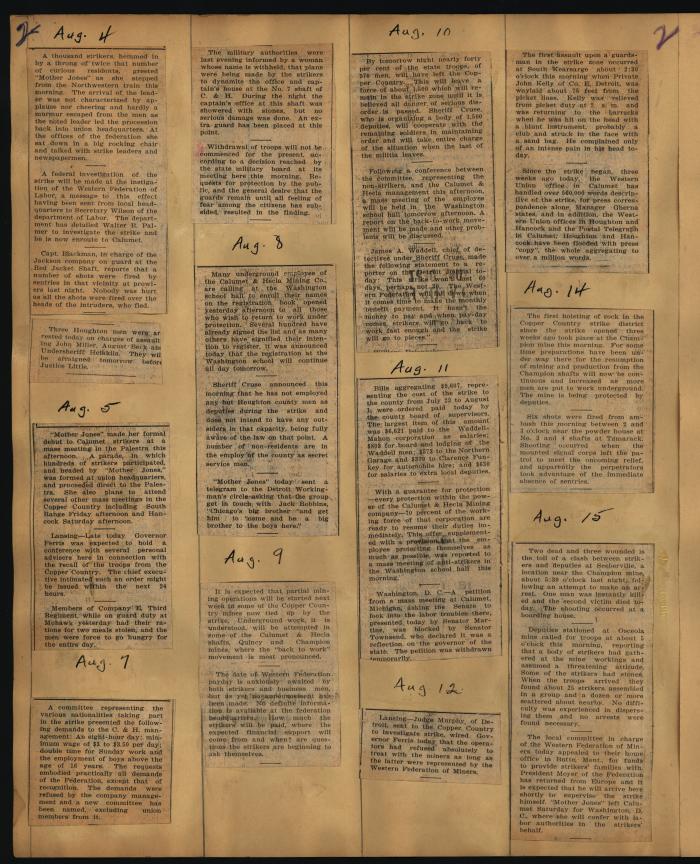 2
Aug. 4
A thousand strikers, hemmed in
by a throng of twice that number
of curious residents, greeted
"Mother Jones" as she stepped
from the Northwestern train this
morning. The arrival of the lead-
er was not characterized by ap-
plause nor cheering and hardly a
murmur escaped from the men as
the noted leader led the procession
back into union headquarters. At
the offices of the federation she
sat down in a big rocking chair
and talked with strike leaders and
newspapermen.
A federal investigation of the
strike will be made at the instiga-
tion of the Western Federation of
Labor, a message to this effect
having been sent from local head-
quarters to Secretary Wilson of the
department of Labor. The depart-
ment has detailed Walter B. Pal-
mer to investigate the strike and
he is now enroute to Calumet.
Capt. Blackman, in charge of the
Jackson company on guard at the
Red Jacket Shaft, reports that a
number of shots were fired by
sentries in that vicinity at prowl-
ers last night. Nobody was hurt
as all the shots were fired over the
heads of the intruders, who fled.
Three Houghton men were ar
rested today on charges of assault
ing John Miller, August Beck and
Undersheriff Heikkila. They will
be arraigned tomorrow before
Justice Little.
Aug. 5
"Mother Jones" made her formal
debut to Calumet strikers at a
mass meeting in the Palestra this
afternoon. A parade, in which
hundreds of strikers participated,
and headed by "Mother Jones,"
was formed at union headquarters,
and proceeded direct to the Pales-
tra. She also plans to attend
several other mass meetings in the
Copper Country including South
Range Friday afternoon and Han-
cock Saturday afternoon.
Lansing—Late today Governor
Ferris was expected to hold a
conference with several personal
advisers here in connection with
the recall of the troops from the
Copper Country. The chief execu-
tive intimated such an order might
be issued within the next 24
hours.
Members of Company E, Third
Regiment, while on guard duty at
Mohawk yesterday had their ra-
tions for two meals stolen, and the
men were force to go hungry for
the entire day.
Aug. 7
A committee representing the
various nationalities taking part
in the strike presented the follow-
ing demands to the C. & H. man-
agement: An eight-hour day; min-
imum wage of $3 to $3.50 per day;
double time for Sunday work and
the employment of boys above the
age of 16 years. The requests
embodied practically all demands
of the Federation, except that of
recognition. The demands were
refused by the company manage-
ment and a new committee has
been named, excluding union
members from it.
The military authorities were
last evening informed by a woman
whose name is withheld, that plans
were being made by the strikers
to dynamite the office and cap-
tain's house at the No. 7 shaft of
C. & H. During the night the
captain's office at this shaft was
showered with stones, but no
serious damage was done. An ex-
tra guard has been placed at this
point.
Withdrawal of troops will not be
commenced for the present, ac-
cording to a decision reached by
the state military board at its
meeting here this morning. Re-
quests for protection by the pub-
lic, and the general desire that the
guards remain until all feeling of
fear among the citizens has sub-
sided, resulted in the finding.
Aug. 8
Many underground employe of
the Calumet & Hecla Mining Co.,
are calling at the Washington
school hall to enroll their names
on the registration book opened
yesterday afternoon to all those
who wish to return to work under
protection. Several hundred have
already signed the list and as many
others have signified their inten-
tion to register, it was announced
today that the registration at the
Washington school will continue
all day tomorrow.
Sheriff Cruse announced this
morning that he has not employed
any but Houghton county men as
deputies during the strike and
does not intend to have any out-
siders in that capacity, being fully
aware of the law on that point. A
number of non-residents are in
the employ of the county as secret
service men.
"Mother Jones" today sent a
telegram to the Detroit Working-
man's circle asking that the group
get in touch with Jack Robbins,
"Chicago's big brother" and get
him to "come and be a big
brother to the boys here."
Aug. 9
It is expected that partial min-
ing operations will be started next
week at some of the Copper Coun-
try mines now tied up by the
strike. Underground work, it is
understood, will be attempted in
some of the Calumet & Hecla
shafts, Quincy and Champion
mines, where the "back to work"
movement is most pronounced.
The date of Western Federation
payday is anxiously awaited by
both strikers and business men,
but as yet no announcement has
been made. No definite informa-
tion is available at the federation
headquarters. How much the
strikers will be paid, where the
expected financial support will
come from and when? are ques-
tions the strikers are beginning to
ask themselves.
Aug. 10
By tomorrow night nearly forty
per cent of the state troops, of
978 men, will have left the Cop-
per Country. This will leave a
force of about 1,500 which will re-
main in the strike zone until it is
believed all danger of serious dis-
order is passed. Sheriff Cruse,
who is organizing a body of 1,500
deputies, will cooperate with the
remaining soldiers in maintaining
order and will take entire charge
of the situation when the last of
the militia leaves.
Following a conference between
the committee, representing the
non-strikers, and the Calumet &
Hecla management this afternoon,
a mass meeting of the employes
will be held in the Washington
school hall tomorrow afternoon. A
report on the back-to-work move-
ment will be made and other prob-
lems will be discussed.
James A. Waddell, chief of de-
tectives under Sheriff Cruse, made
the following statement to a re-
porter on the Detroit Journal to-
day: This strike won't last 60
days, perhaps not 30. The West-
ern Federation will nail down when
it comes time to make the monthly
benefit payment. It hasn't the
money to pay and when pay-day
comes, strikers will go back to
work fast enough and the strike
will go to pieces."
Aug. 11
Bills aggregating $9,667, repre-
senting the cost of the strike to
the county from July 23 to August
1, were ordered paid today by
the county board of supervisors.
The largest item of this amount
was $6,621 paid to the Waddell-
Mahon corporation as salaries;
$893 for board and lodging of the
Waddell men; $373 to the Northern
Garage and $370 to Clarence Fun-
key for automobile hire; and $650
for salaries to extra local deputies.
With a guarantee for protection
—every protection within the pow-
er of the Calumet & Hecla Mining
company—70 percent of the work-
ing force of that corporation are
ready to resume their duties im-
mediately. This offer, supplement-
ed with a provision that the em-
ploye protecting themselves as
much as possible, was reported to
a mass meeting of anti-strikers in
the Washington school hall this
morning.
Washington, D. C.—A petition
from a mass meeting at Calumet,
Michigan, asking the Senate to
look into the labor troubles there,
presented today by Senator Mar-
tine, was blocked by Senator
Townsend, who declared it was a
reflection on the governor of the
state. The petition was withdrawn
temporarily.
Aug 12
Lansing—Judge Murphy, of De-
troit, sent to the Copper Country
to investigate strike, wired Gov-
ernor Ferris today that the opera-
tors had refused absolutely to
treat with the miners as long as
the latter were represented by the
Western Federation of Miners.
2
The first assault upon a guards-
man in the strike zone occurred
at South Kearsarge about 2:30
o'clock this morning when Private
John Kelly of Co. E, Detroit, was
waylaid about 75 feet from the
picket lines. Kelly was relieved
from picket duty at 2 a. m. and
was returning to the barracks
when he was hit on the head with
a blunt instrument, probably a
club and struck in the face with
a sand bag. He complained only
of an intense pain in his head to-
day.
Since the strike began, three
weeks ago today, the Western
Union office in Calumet has
handled over 560,000 words descrip-
tive of the strike, for press corres-
pondence alone, Manager Oberna
states, and in addition, the West-
ern Union offices in Houghton and
Hancock and the Postal Telegraph
in Calumet, Houghton and Han-
cock have been flooded with press
"copy", the whole aggregating to
over a million words.
Aug. 14
The first hoisting of rock in the
Copper Country strike district
since the strike opened three
weeks ago took place at the Cham-
pion mine this morning. For some
time preparations have been un-
der way there for the resumption
of mining and production from the
Champion shafts will now be con-
tinuous and increased as more
men are put to work underground.
The mine is being protected by
deputies.
Six shots were fired from am-
bush this morning between 2 and
3 o'clock near the powder house at
No. 3 and 4 shafts at Tamarack.
Shooting occurred when the
mounted signal corps left the pa-
trol to meet the oncoming relief,
and apparently the perpetrators
took advantage of the immediate
absence of sentries.
Aug. 15
Two dead and three wounded is
the toll of a clash between strik-
ers and deputies at Seeberville, a
location near the Champion mine,
about 5:30 o'clock last night, fol-
lowing an attempt to make an ar-
rest. One man was instantly kill-
ed and the second victim died to-
day. The shooting occurred at a
boarding house.
Deputies stationed at Osceola
mine called for troops at about 5
o'clock this morning, reporting
that a body of strikers had gath-
ered at the mine workings and
assumed a threatening attitude.
Some of the strikers had stones.
When the troops arrived they
found about 25 strikers assembled
in a group and a dozen or more
scattered about nearby. No diffi-
culty was experienced in dispers-
ing them and no arrests were
found necessary.
The local committee in charge
of the Western Federation of Min-
ers today appealed to their home
office in Butte, Mont., for funds
to provide strikers' families with.
President Moyer of the Federation
has returned from Europe and it
is expected that he will arrive here
shortly to supervise the strike
himself. "Mother Jones" left Calu-
met Saturday for Washington, D.
C., where she will confer with la-
bor authorities in the strikers'
behalf.